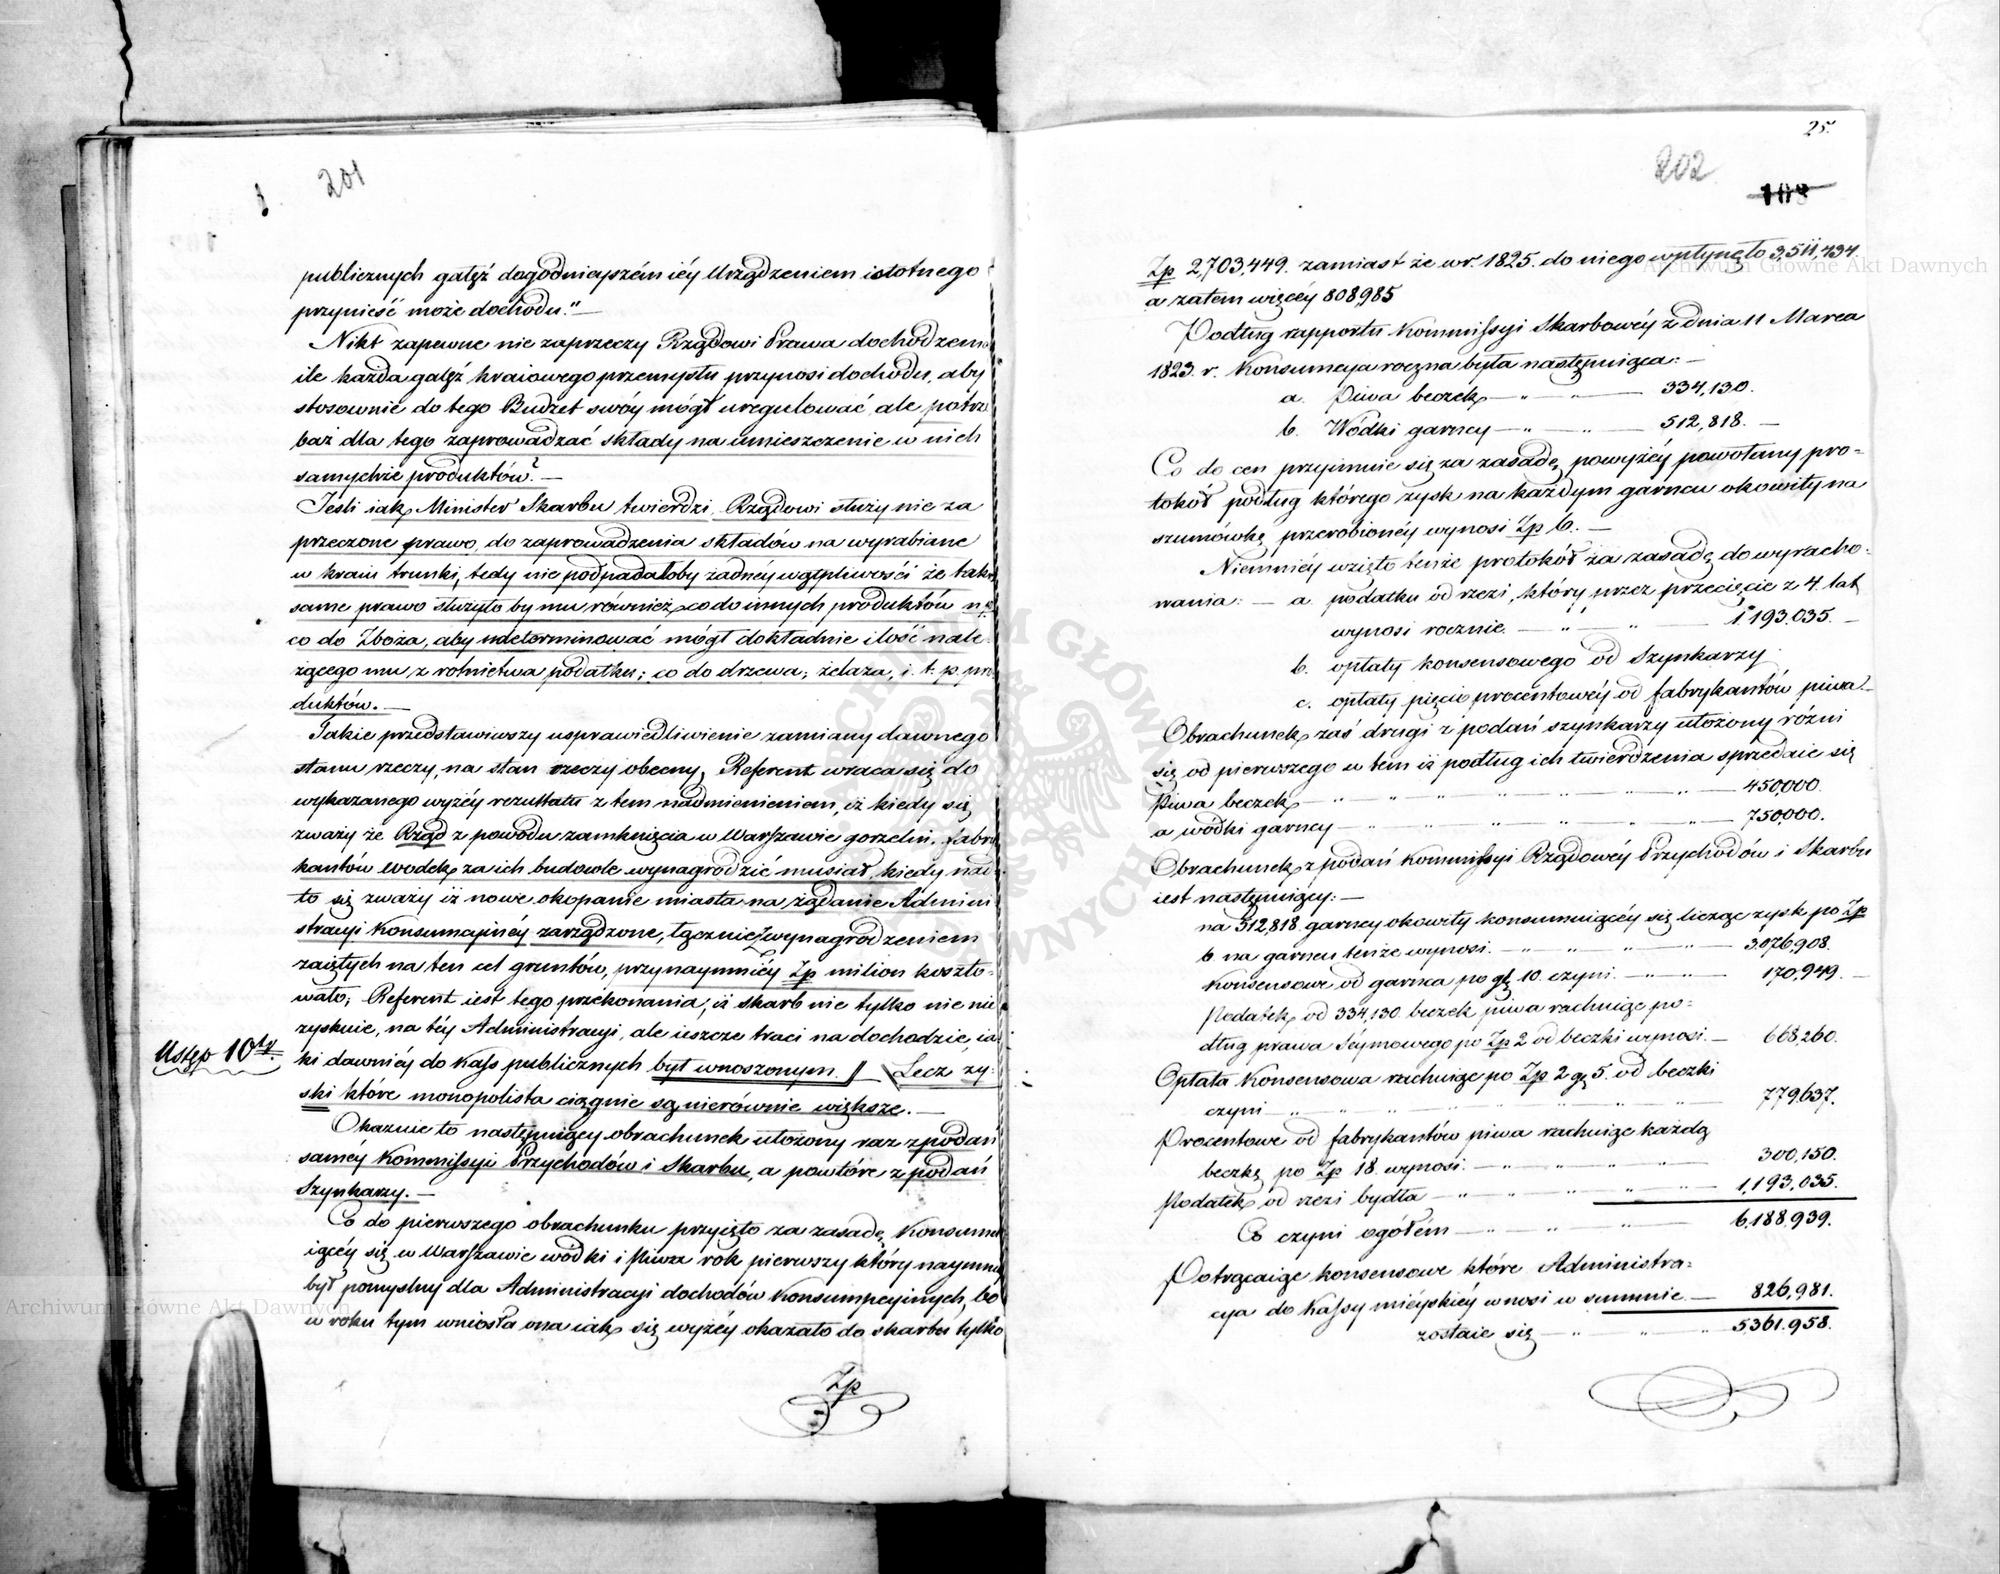 201
publicznych gałęź dogodniayszém iéy Urządzeniem istotnego
przynieść może dochodu."—
Nikt zapewne nie zaprzeczy Rządowi Prawa dochodzenia
ile każda gałęź kraiowego przemysłu przynosi dochodu, aby
stosownie do tego Budżet swóy mógł uregulować, ale potrze
baż dla tego zaprowadzać składy na umieszczenie w nich
samychże produktów?—
Jeśli iak Minister Skarbu twierdzi, Rządowi służy nie za
przeczone prawo, do zaprowadzenia składów na wyrabiane
w kraiu trunki, tedy nie podpadałoby żadnéy wątpliwości że takie
same prawo służyło by mu również co do innych produktów np.
co do Zboża, aby udeterminować mógł dokładnie ilość nale
żącego mu z rolnictwa podatku; co do drzewa, żelaza, i. t. p. pro
duktów.—
Takie przedstawiwszy usprawiedliwienie zamiany dawnego
stanu rzeczy, na stan rzeczy obecny, Referent wraca się do
wykazanego wyżéy rezultatu z tem nadmienieniem, iż kiedy się
zważy że Rząd z powodu zamknięcia w Warszawie gorzelni, fabry
kantów wodek za ich budowle wynagrodzić musiał, kiedy nad
to się zważy iż nowe okopanie miasta na żądanie Admini
stracyi Konsumcyinéy zarządzone, łącznie z wynagrodzeniem
zaiętych na ten cel gruntów, przynaymniéy Zp milion koszto-
wało; Referent iest tego przekonania, iż skarb nie tylko nie nie
zyskuie, na téy Administracyi, ale ieszcze traci na dochodzie, ia
Ustęp 10ty.
ki dawniéy do Kass publicznych był wnoszonym. // — Lecz zy-
ski które monopolista ciągnie są nierównie większe.—
Okazuie to następuiący obrachunek ułożony raz z podań
saméy Kommissyi Przychodów i Skarbu, a powtóre z podań
Szynkarzy.—
Co do pierwszego obrachunku przyięto za zasadę Konsumu
iącéy się w Warszawie wódki i Piwa rok pierwszy który naymniéy
był pomyślny dla Administracyi dochodów Konsumpcyinych, bo
w roku tym wniosła ona iak się wyżéy okazało do skarbu tylko
Zp
25.
202
Zp 2,703,449. zamiast że w r. 1825. do niego wpłynęło 3,511,434.
a zatem więcéy 808,985
Podług rapportu Kommissyi Skarbowéy z dnia 11 Marca
1823. r. Konsumcya roczna była następuiąca:—
a. Piwa beczek — " — 334,130.
b. Wódki garncy — " — " — 512,818. —
Co do cen przyimuie się za zasadę powyżéy powołany pro-
tokół podług którego zysk na każdym garncu okowity na
szumówkę przerobionéy wynosi Zp 6. —
Niemniéy wzięto tenże protokół za zasadę do wyracho-
wania: — a. podatku od rzezi, który przez przecięcie z 4. lat
wynosi rocznie. — " — " — 1,193,035. —
b. opłaty konsensowego od Szynkarzy
c. opłaty pięcio procentowéy od fabrykantów piwa—
Obrachunek zaś drugi z podań szynkarzy ułożony różni
się od pierwszego w tem iż podług ich twierdzenia sprzedaie się
Piwa beczek — " — " — " — " — " — " — 450,000.
a wódki garncy — " — " — " — " — " — 750,000.
Obrachunek z podań Kommissyi Rządowéy Przychodów i Skarbu
iest następuiący:—
na 512,818. garncy okowity konsumuiącéy się licząc zysk po Zp
6. na garncu tenże wynosi. — " — " — " — 3,076,908.
Konsensowe od garnca po gr. 10. czyni — " — 170,949. —
Podatek od 334,130. beczek piwa rachuiąc po-
dług prawa Séymowego po Zp 2 od beczki wynosi.— 668,260.
Opłata Konsensowa rachuiąc po Zp 2 g. 5. od beczki
czyni — " — " — " — " — 779,637.
Procentowe od fabrykantów piwa rachuiąc każdą
beczkę po Zp 18. wynosi. — " — " — " — 300,150.
Podatek od rzezi bydła — " — " — " — 1,193,035.
Co czyni ogółem — " — " — " — 6,188,939.
Potrącaiąc konsensowe które Administra-
cya do Kassy mieyskiéy wnosi w summie — 826,981.
zostaie się — " — " — " 5,361,958.